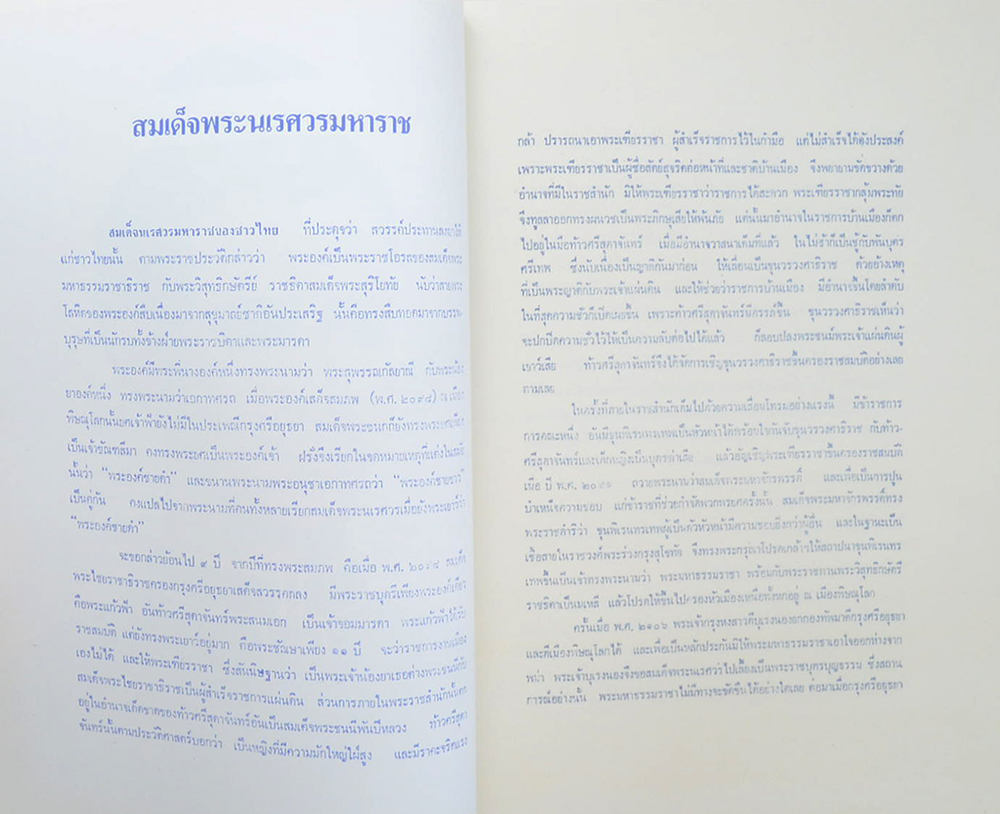 สมเด็จพระนเรศวรมหาราช
สมเด็จนเรศวรมหาราชของชาวไทย ที่ประดุจว่า สวรรค์ประทานลงมาให้
แก่ชาวไทยนั้น ตามพระราชประวัติกล่าวว่า พระองค์เป็นพระราชโอรสของสมเด็จพระ
มหาธรรมราชาธิราช กับพระวิสุทธิกษัตรีย์ ราชธิดาสมเด็จพระสุริโยทัย นับว่าสายพระ
โลหิตของพระองค์สืบเนื่องมาจากสุขุมาลย์ชาติอันประเสริฐ นั้นคือทรงสืบทอดมาจากบรรพ
บุรุษที่เป็นนักรบทั้งข้างฝ่ายพระราชบิดาและพระมารดา
พระองค์มีพระพี่นางองค์หนึ่งทรงพระนามว่า พระสุพรรณกัลยาณี กับพระน้อง
ยาองค์หนึ่ง ทรงพระนามว่าเอกาทศรถ เมื่อพระองค์เสด็จสมภพ (พ.ศ. ๒๐๙๘) ณ เมือง
พิษณุโลกนั้นยศเจ้าฟ้ายังไม่มีในประเพณีกรุงศรีอยุธยา สมเด็จพระชนกก็ยังทรงพระยศเพียง
เป็นเจ้าขัณฑสีมา คงทรงพระยศเป็นพระองค์เจ้า ฝรั่งจึงเรียกในจดหมายเหตุที่แต่งในสมัย
นั้นว่า “พระองค์ชายดำ” และขนานพระนามพระอนุชาเอกาทศรถว่า “พระองค์ชายขาว”
เป็นคู่กัน คงแปลไปจากพระนามที่คนทั้งหลายเรียกสมเด็จพระนเรศวรเมื่อยังพระเยาว์ว่า
“พระองค์ชายดำ”
จะขอกล่าวย้อนไป ๙ ปี จากปีที่ทรงพระสมภพ คือเมื่อ พ.ศ. ๒๐๘๙ สมเด็จ
พระไชยราชาธิราชครองกรุงศรีอยุธยาเสด็จสวรรคตลง มีพระราชบุตรีเพียงพระองค์เดียว
คือพระแก้วฟ้า อันท้าวศรีสุดาจันทร์พระสนมเอก เป็นเจ้าจอมมารดา พระแก้วฟ้าได้รับ
ราชสมบัติ แต่ยังทรงพระเยาว์อยู่มาก คือพระชันษาเพียง ๑๑ ปี จะว่าราชการงานเมือง
เองไม่ได้ และให้พระเฑียรราชา ซึ่งสันนิษฐานว่า เป็นพระเจ้าน้องยาเธอต่างพระชนนีกับ
สมเด็จพระไชยราชาธิราชเป็นผู้สำเร็จราชการแผ่นดิน ส่วนการภายในพระราชสำนักนั้นตก
อยู่ในอำนาจเด็ดขาดของท้าวศรีสุดาจันทร์อันเป็นสมเด็จพระชนนีพันปีหลวง ท้าวศรีสุดา
จันทร์นั้นตามประวัติศาสตร์บอกว่า เป็นหญิงที่มีความมักใหญ่ใฝ่สูง และมีราคะจริตแรง
กล้า ปรารถนาเอาพระเฑียรราชา ผู้สำเร็จราชการไว้ในกำมือ แต่ไม่สำเร็จได้ดังประสงค์
เพราะพระเฑียรราชาเป็นผู้ซื่อสัตย์สุจริตต่อหน้าที่และชาติบ้านเมือง จึงพยายามขัดขวางด้วย
อำนาจที่มีในราชสำนัก มิให้พระเฑียรราชาว่าราชการได้สะดวก พระเฑียรราชากลุ้มพระทัย
จึงทูลลาออกทรงผนวชเป็นพระภิกษุเสียให้พ้นภัย แต่นั้นมาอำนาจในราชการบ้านเมืองก็ตก
ไปอยู่ในมือท้าวศรีสุดาจันทร์ เมื่อมีอำนาจวาสนาเต็มที่แล้ว ในไม่ช้าก็เป็นชู้กับพันบุตร
ศรีเทพ ซึ่งนับเนื่องเป็นญาติกันมาก่อน ให้เลื่อนเป็นขุนวรวงศาธิราช ด้วยอ้างเหตุ
ที่เป็นพระญาติกับพระเจ้าแผ่นดิน และให้ช่วยว่าราชการบ้านเมือง มีอำนาจขึ้นโดยลำดับ
ในที่สุดความชั่วก็เปิดเผยขึ้น เพราะท้าวศรีสุดาจันทร์มีครรภ์ขึ้น ขุนวรวงศาธิราชเห็นว่า
จะปกปิดความชั่วไว้ให้เป็นความลับต่อไปได้แล้ว ก็ลอบปลงพระชนม์พระเจ้าแผ่นดินผู้
เยาว์เสีย ท้าวศรีสุดาจันทร์จึงได้จัดการเชิญขุนวรวงศาธิราชขึ้นครองราชสมบัติอย่างเลย
ตามเลย
ในครั้งที่ภายในราชสำนักเต็มไปด้วยความเสื่อมโทรมอย่างแรงนี้ มีข้าราชการ
การคณะหนึ่ง อันมีขุนพิเรนทรเทพเป็นหัวหน้าได้พร้อมใจกันจับขุนวรวงศาธิราช กับท้าว-
ศรีสุดาจันทร์และเด็กหญิงเป็นบุตรฆ่าเสีย แล้วอัญเชิญพระเฑียรราชาขึ้นครองราชสมบัติ
เมื่อ ปี พ.ศ. ๒๐๙๑ ถวายพระนามว่าสมเด็จพระมหาจักรพรรดิ์ และเพื่อเป็นการปูน
บำเหน็จความชอบ แก่ข้าราชที่ช่วยกำจัดพวกทรยศครั้งนั้น สมเด็จพระมหาจักรพรรดิทรง
พระราชดำริว่า ขุนพิเรนทรเทพผู้เป็นตัวหัวหน้ามีความชอบยิ่งกว่าผู้อื่น และในฐานะเป็น
เชื้อสายในราชวงศ์พระร่วงกรุงสุโขทัย จึงทรงพระกรุณาโปรดเกล้าฯให้สถาปนาขุนพิเรนทร
เทพขึ้นเป็นเจ้าทรงพระนามว่า พระมหาธรรมราชา พร้อมกับพระราชทานพระวิสุทธิกษัตรี
ราชธิดาเป็นมเหสี แล้วโปรดให้ขึ้นไปครองหัวเมืองเหนือทั้งหกอยู่ ณ เมืองพิษณุโลก
ครั้นเมื่อ พ.ศ. ๒๑๐๖ พระเจ้ากรุงหงสาวดีบุเรงนองยกกองทัพมาตีกรุงศรีอยุธยา
และตีเมืองพิษณุโลกได้ และเพื่อเป็นหลักประกันมิให้พระมหาธรรมราชาเอาใจออกห่างจาก
พม่า พระเจ้าบุเรงนองจึงขอสมเด็จพระนเรศวรไปเลี้ยงเป็นพระราชบุตรบุญธรรม ซึ่งสถาน
การณ์อย่างนั้น พระมหาธรรมราชาไม่มีทางจะขัดขืนได้อย่างใดเลย ต่อมาเมื่อกรุงศรีอยุธยา